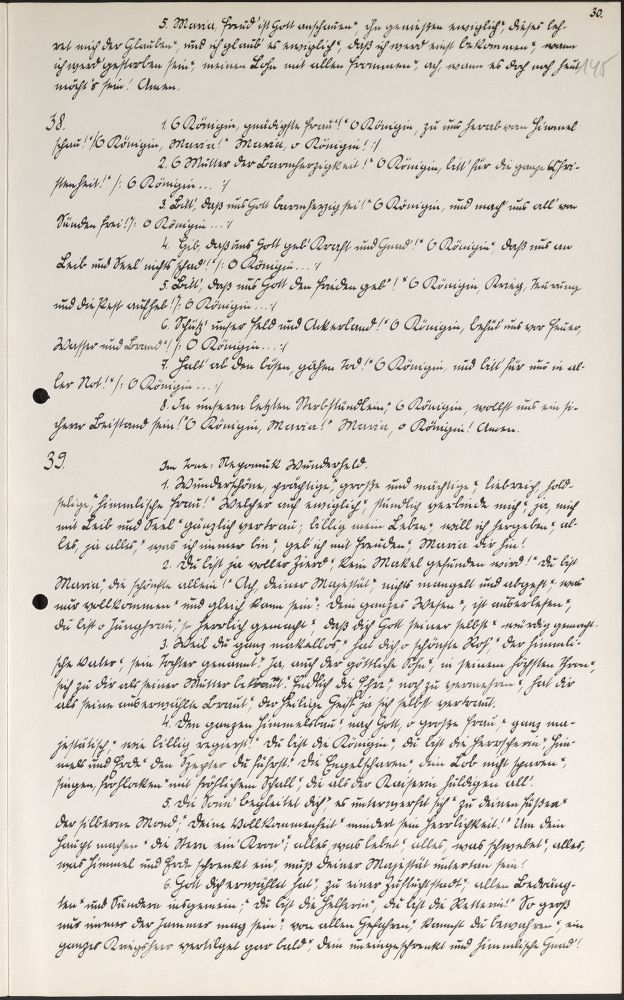 30.
5. Maria, Freud' ist Gott anschauen", ihn genießen ewiglich", dieses leh-
ret mich der Glauben", und ich glaub' es ewiglich", daß ich werd' einst bekommen", wann
ich werd' gestorben sein", meinen Lohn mit allen Frommen", ach, wann es doch noch heut
145
möcht's sein! Amen.
38.
1. O Königin, gnädigste Frau!" O Königin, zu uns herab vom Himmel
schau!" /: O Königin, Maria!" Maria, o Königin! :/
2. O Mutter der Barmherzigkeit!" O Königin, bitt' für die ganze Chri-
stenheit!" /: O Königin... :/
3. Bitt', daß uns Gott barmherzig sei!" O Königin, und mach' uns all' von
Sünden frei! /: O Königin... :/
4. Gib, daß uns Gott geb' Kraft und Gnad'!" O Königin", daß uns an
Leib und Seel' nichts schad'!" /: O Königin... :/
5. Bitt', daß uns Gott den Frieden geb'!" O Königin, Krieg, Teuerung
und die Pest aufheb'! /: O Königin... :/
6. Schütz' unser Feld und Ackerland!" O Königin, behüt' uns vor Feuer,
Wasser und Brand"! /: O Königin... :/
7. Halt' ab den bösen, gähen Tod!" O Königin, und bitt' für uns in al-
ler Not!" /: O Königin... :/
8. In unserm letzten Sterbstündlein," O Königin, wollst uns ein si-
cherer Beistand sein!" O Königin, Maria!" Maria, o Königin! Amen.
39.
Im Tone: Nepomuk Wunderheld.
1. Wunderschöne, prächtige," große und mächtige," liebreich hold-
selige," himmlische Frau!" Welcher auf ewiglich," kindlich verbinde mich," ja, mich
mit Leib und Seel" gänzlich vertrau; billig mein Leben," will ich hergeben," al-
les, ja alles," was ich immer bin," geb' ich mit Freuden," Maria dir hin!
2. Du bist ja voller Zierd'" kein Makel gefunden wird!" Du bist
Maria," die schönste allein!" Ach, deiner Majestät," nichts mangelt und abgeht," was
nur vollkommen" und gleich kann sein". Dein ganzes Wesen", ist auserlesen",
du bist o Jungfrau," so herrlich gemacht" daß dich Gott seiner selbst" würdig gemacht.
3. Weil du ganz makellos" hat dich o schönste Ros'," der himmli-
sche Vater", sein Tochter genannt." Ja, auch der göttliche Sohn", in seinem höchsten Thron",
sich zu dir als seiner Mutter bekannt." Endlich die Ehr'", noch zu vermehren", hat dir
als seine auserwählte Braut," der Heilige Geist ja sich selbst vertraut.
4. Den ganzen Himmelsbau" nach Gott, o große Frau," ganz ma-
jestätisch," wie billig regierst!" Du bist die Königin", du bist die Herrscherin", Him-
mels und Erde" den Szepter du führst." Die Engelscharen" dein Lob nicht sparen",
singen, frohlocken" mit fröhlichem Schall," dir als der Kaiserin huldigen all'.
5. Die Sonn' begleitet dich" es unterwerfet sich" zu deinen Füßen"
der silberne Mond," deine Vollkommenheit" mindert sein Herrlichkeit!" Um dein
Haupt machen" die Stern ein' Kron'," alles, was lebet," alles, was schwebet", alles,
was Himmel und Erde schrenkt ein," muß deiner Majestät untertan sein!
6. Gott dich erwählet hat," zu einer Zufluchtstadt", allen Bedräng-
ten" und Sündern insgemein;" du bist die Helferin", du bist die Retterin!" So groß
nur immer der Jammer mag sein"; von allen Gefahren", kannst du bewahren", ein
ganzes Kriegsheer vertilget gar bald", dein uneingeschrenkt und himmlische Gnad'!